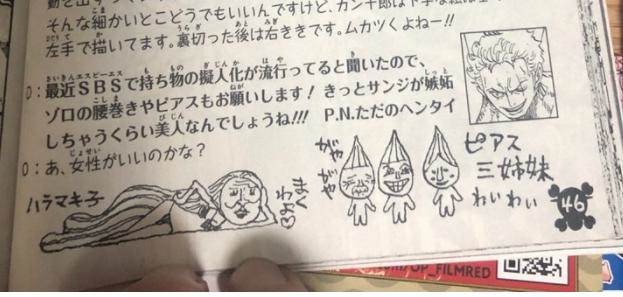 そんな細かいとこどうでもいいんですけど、カン十郎は下手な絵は全て
左手で描いてます。裏切った後は右きです。ムカツくよねー!!
D:最近SBSで持ち物の擬人化が流行ってると聞いたので、
ゾロの腰巻きやピアスもお願いします!きっとサンジが嫉妬
しちゃうくらい美人なんでしょうね!!! P.N.ただのヘンタイ
O:あ、女性がいいのかな?
ハラマキ子
まくわよ♡
がやがや
ピアス
三姉妹
わいわい
46
OP_FILMRED